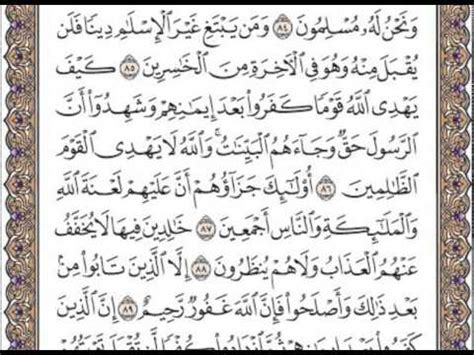 وَنَحْنُ لَهُۥ مُسْلِمُونَ ٨٤ وَمَن يَبْتَغِ غَيْرَ ٱلْإِسْلَٰمِ دِينًا فَلَن
يُقْبَلَ مِنْهُ وَهُوَ فِى ٱلْءَاخِرَةِ مِنَ ٱلْخَٰسِرِينَ ٨٥ كَيْفَ
يَهْدِى ٱللَّهُ قَوْمًا كَفَرُوا۟ بَعْدَ إِيمَٰنِهِمْ وَشَهِدُوٓا۟ أَنَّ
ٱلرَّسُولَ حَقٌّ وَجَآءَهُمُ ٱلْبَيِّنَٰتُ ۚ وَٱللَّهُ لَا يَهْدِى ٱلْقَوْمَ
ٱلظَّٰلِمِينَ ٨٦ أُو۟لَٰٓئِكَ جَزَآؤُهُمْ أَنَّ عَلَيْهِمْ لَعْنَةَ ٱللَّهِ
وَٱلْمَلَٰٓئِكَةِ وَٱلنَّاسِ أَجْمَعِينَ ٨٧ خَٰلِدِينَ فِيهَا لَا يُخَفَّفُ
عَنْهُمُ ٱلْعَذَابُ وَلَا هُمْ يُنظَرُونَ ٨٨ إِلَّا ٱلَّذِينَ تَابُوا۟ مِنۢ
بَعْدِ ذَٰلِكَ وَأَصْلَحُوا۟ فَإِنَّ ٱللَّهَ غَفُورٌ رَّحِيمٌ ٨٩ إِنَّ ٱلَّذِينَ